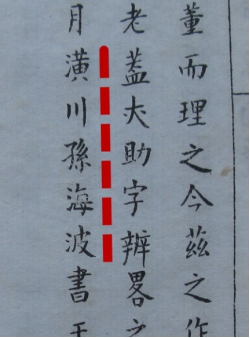 董而理之今茲之作
老蓋夫助字辨畧之
月潢川孫海波書于